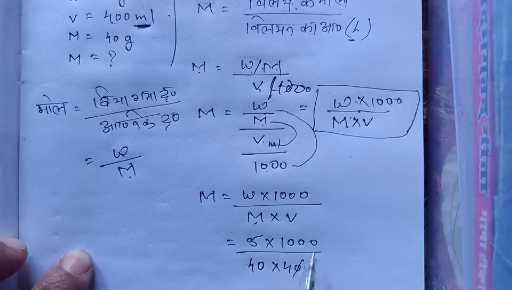 V = 400 ml
M = 40 g
M = ?
M =
विलयन का आय० (L)
M = W/M
V /1000
मोल = दिया गया द्र०
आण्विक द्र०
= W
M
M = W
M
V ml
1000
= W × 1000
M × V
M = W × 1000
M × V
= 5 × 1000
40 × 40